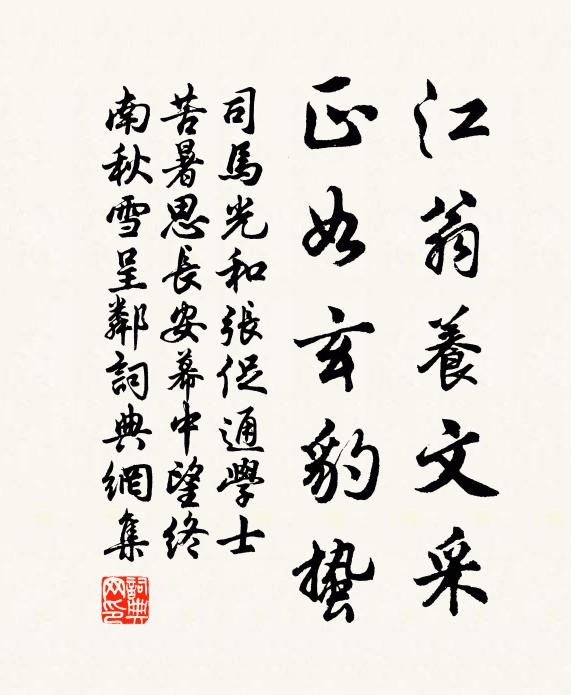 江翁養文采
正如玄豹蟄
司馬光和張伲通學士
苦暑思長安幕中望終
南秋雪呈鄰詞典網集
詞典網印